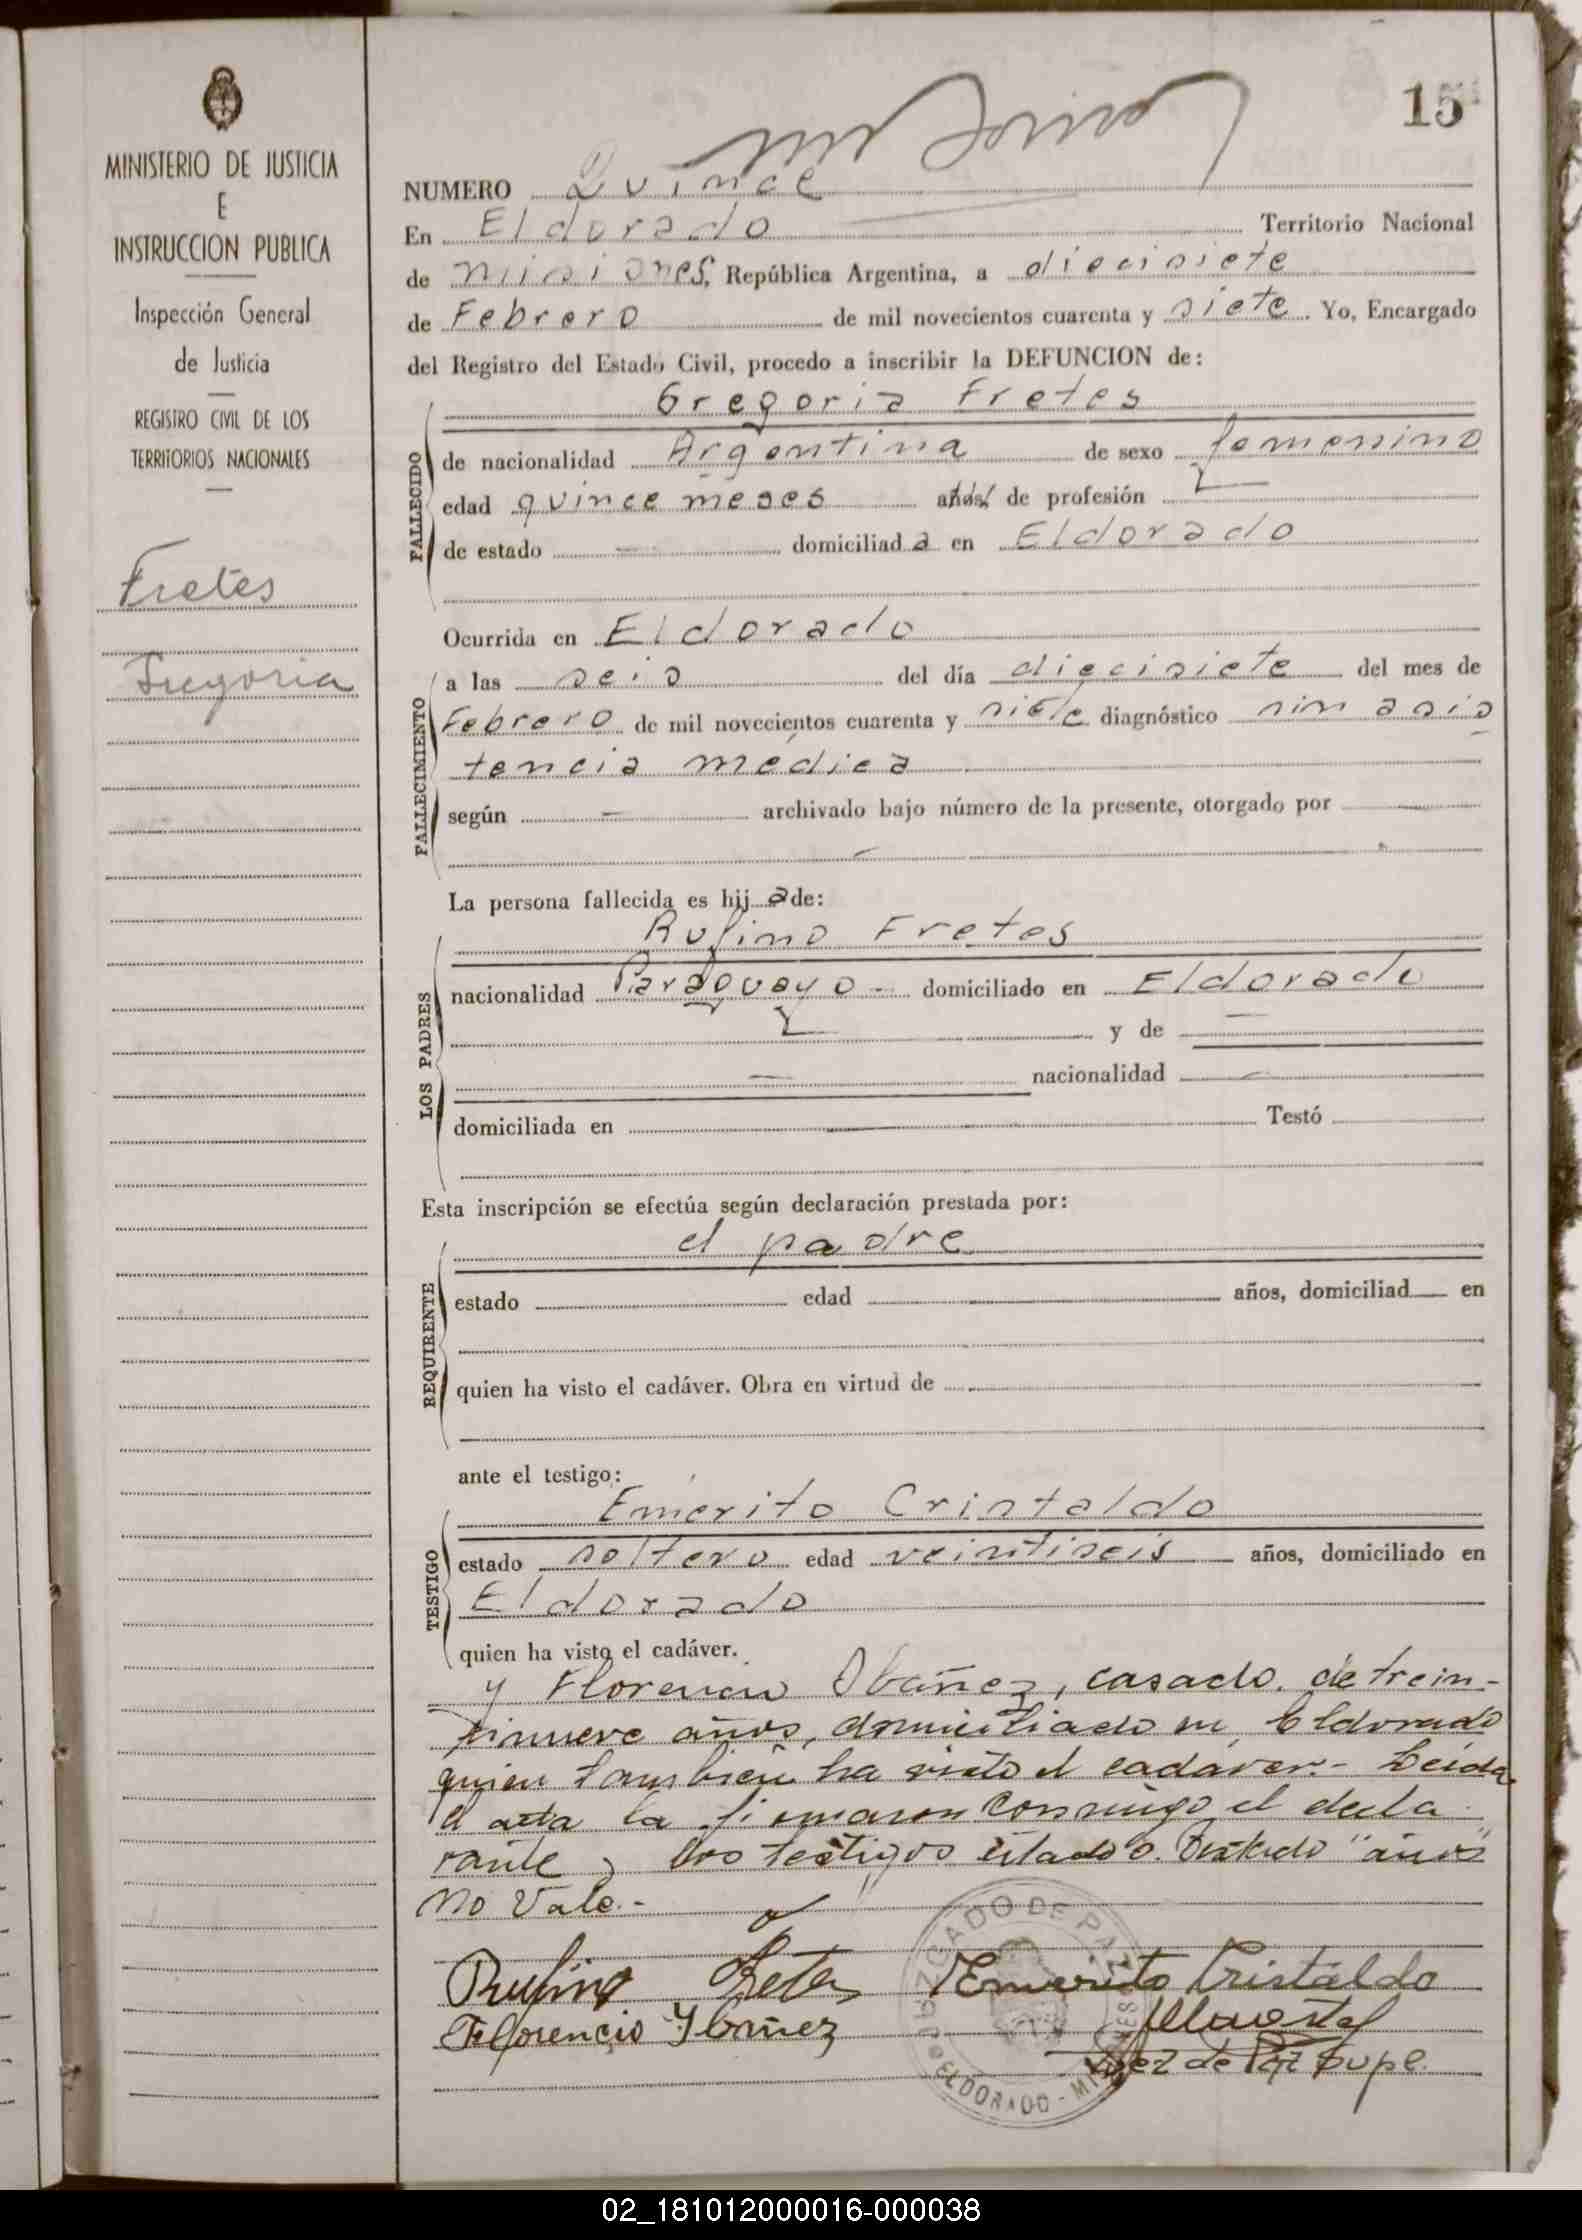 15
MINISTERIO DE JUSTICIA
E
INSTRUCCION PUBLICA
Inspección General
de Justicia
REGISTRO CIVIL DE LOS
TERRITORIOS NACIONALES
Fretes
Gregoria
NUMERO Quince
En Eldorado Territorio Nacional
de Misiones, República Argentina, a diecisiete
de Febrero de mil novecientos cuarenta y siete. Yo, Encargado
del Registro del Estado Civil, procedo a inscribir la DEFUNCION de:
Gregoria Fretes
FALLECIDO
de nacionalidad Argentina de sexo femenino
edad quince meses años de profesión
de estado - domiciliada en Eldorado
Ocurrida en Eldorado
FALLECIMIENTO
a las seis del día diecisiete del mes de
Febrero de mil novecientos cuarenta y siete diagnóstico sin asis
tencia médica
según - archivado bajo número de la presente, otorgado por
La persona fallecida es hija de:
LOS PADRES
Rufino Fretes
nacionalidad Paraguayo - domiciliado en Eldorado
y de
nacionalidad
domiciliada en Testó
Esta inscripción se efectúa según declaración prestada por:
REQUIRENTE
el padre
estado edad años, domiciliad en
quien ha visto el cadáver. Obra en virtud de
ante el testigo:
TESTIGO
Emérito Cristaldo
estado soltero edad veintiseis años, domiciliado en
Eldorado
quien ha visto el cadáver.
y Florencio Ibañez, casado, de trein-
tinueve años, domiciliado en Eldorado
quien tambien ha visto el cadáver.- Leida
el acta la firmaron conmigo el decla
rante y los testigos citados. Testado "años"
No Vale.-
Rufino Fretes Emerito Cristaldo
Florencio Ybañez
Juez de Paz Supl.
JUZGADO DE PAZ
ELDORADO - MISIONES
02_181012000016-000038